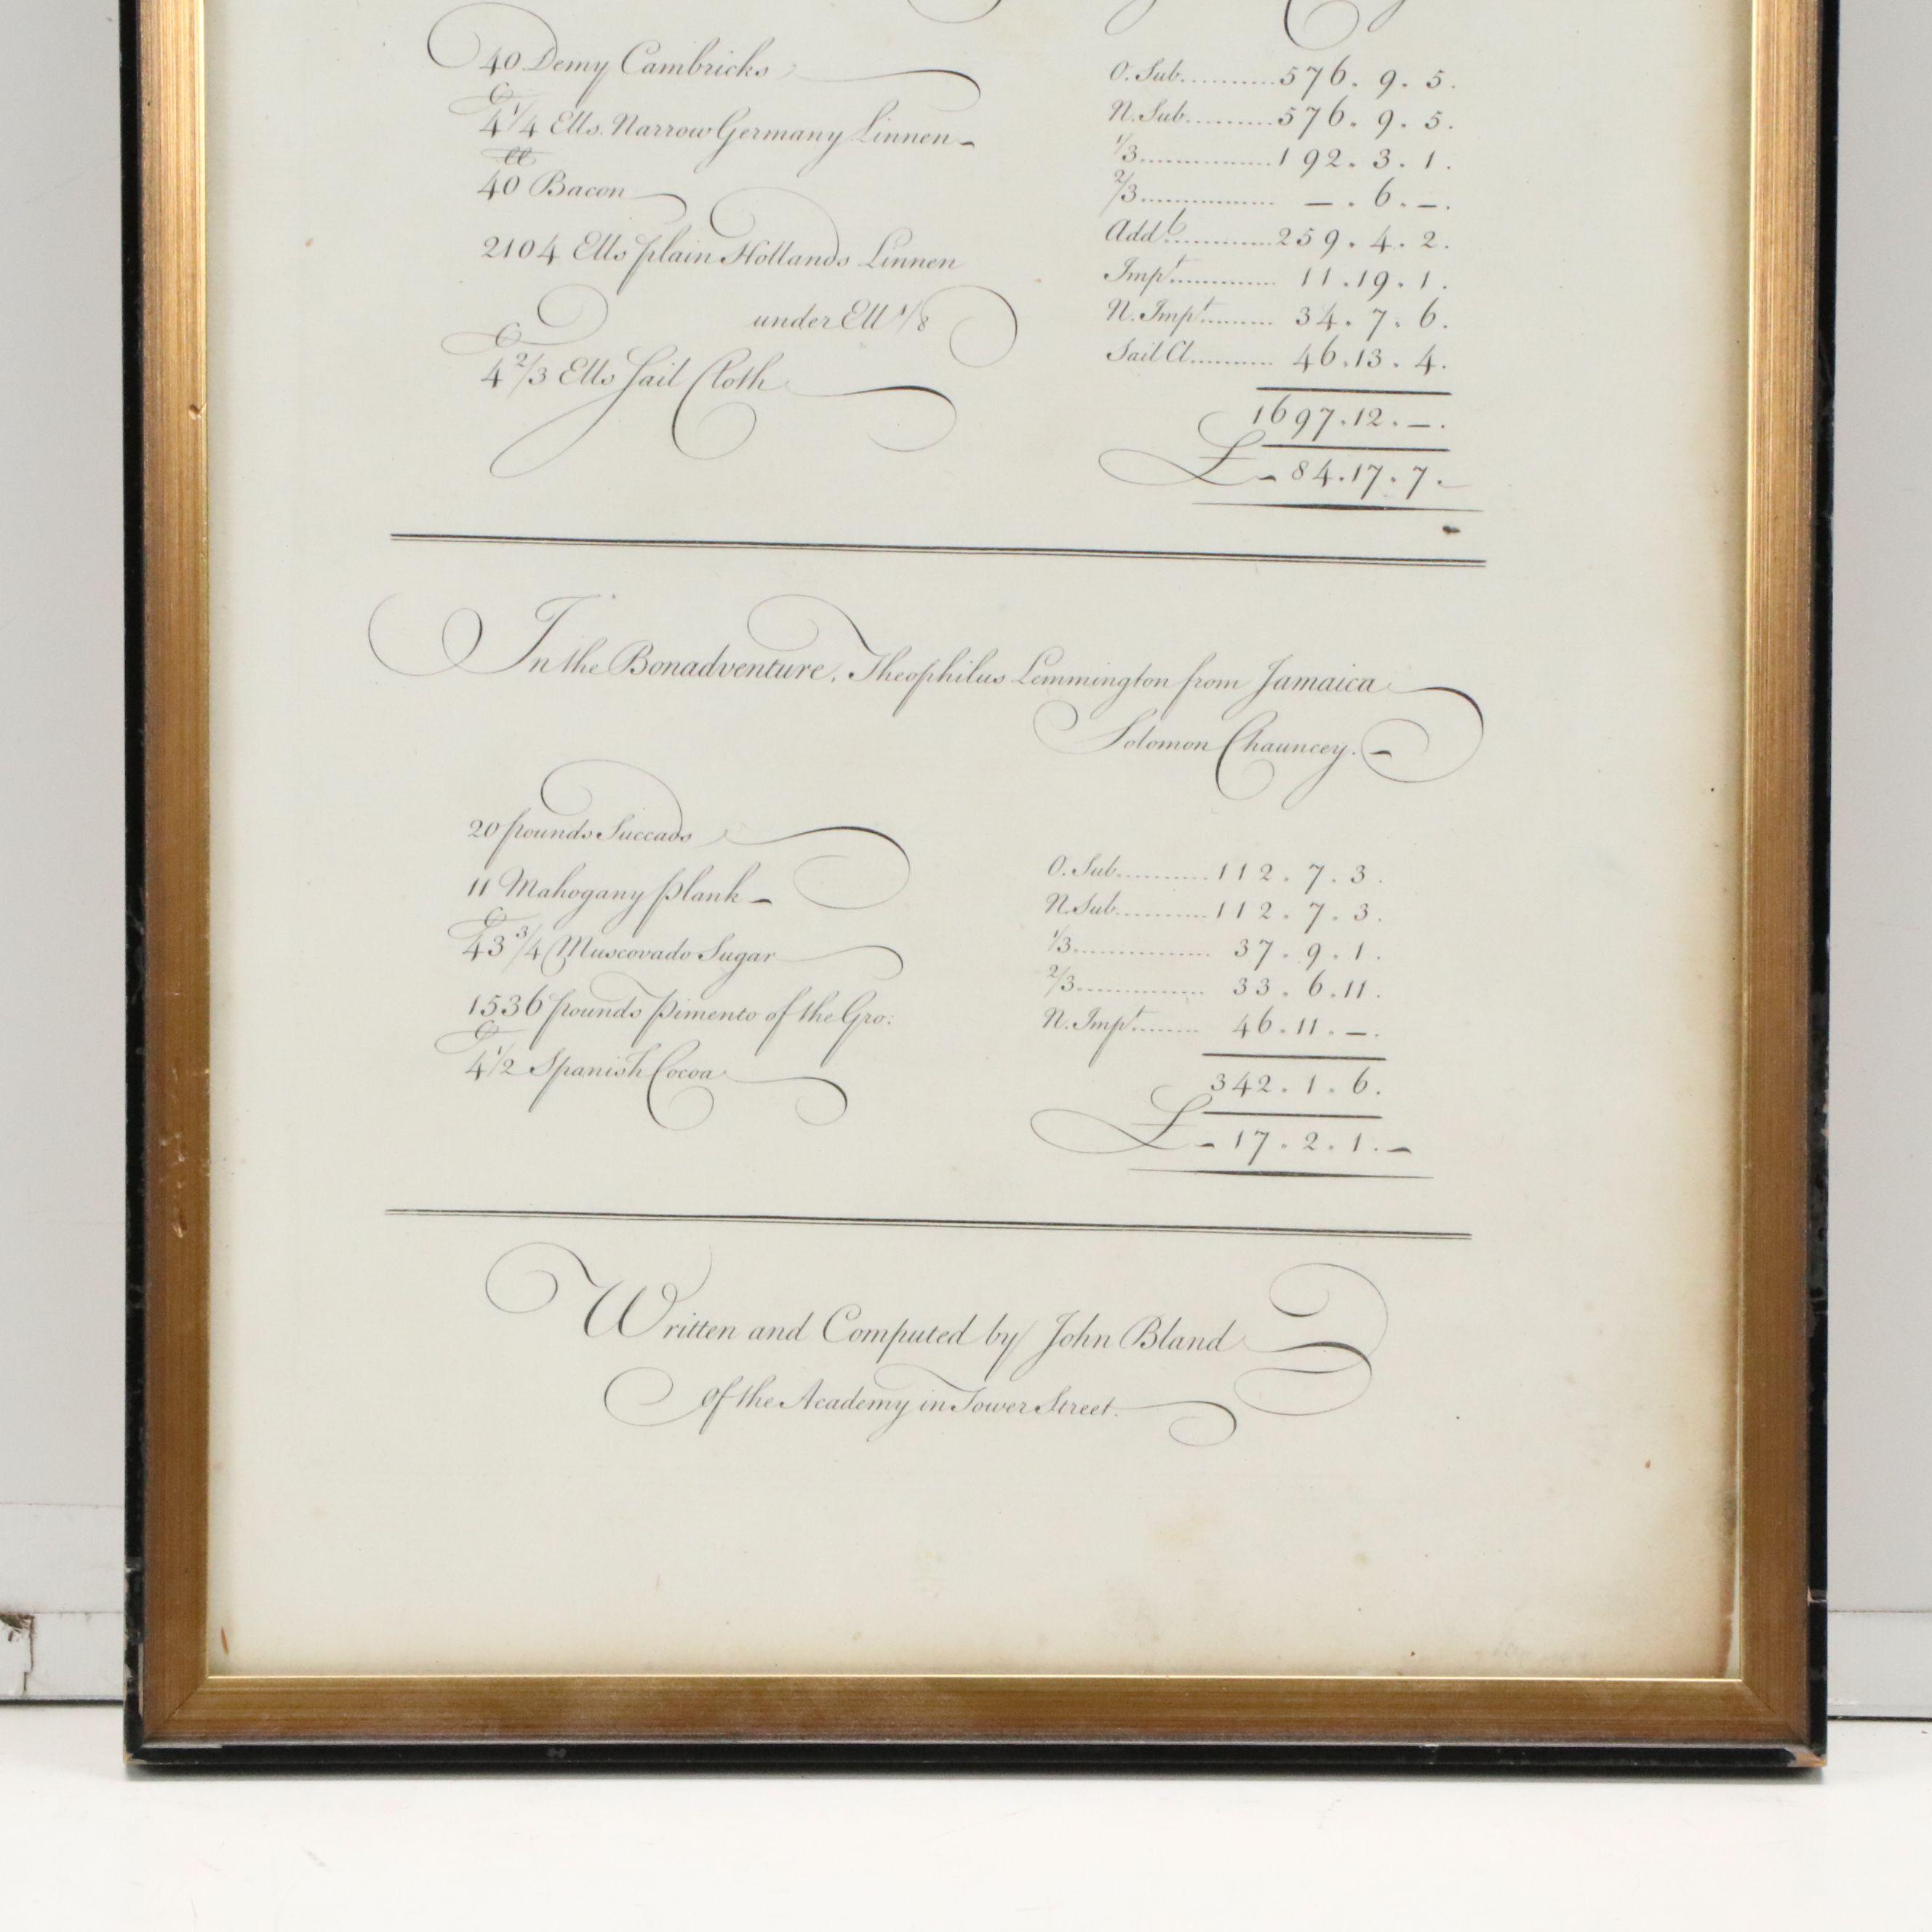 40 Demy Cambricks
C
4 1/4 Ells Narrow Germany Linnen
ll
40 Bacon
2104 Ells plain Hollands Linnen
under Ell 1/8
C
4 2/3 Ells Sail Cloth
O. Sub...........576. 9. 5.
N. Sub..........576. 9. 5.
1/3...............192. 3. 1.
2/3............... –. 6. –.
Add.l............259. 4. 2.
Imp.t............ 11. 19. 1.
N. Imp.t......... 34. 7. 6.
Sail Cl........... 46. 13. 4.
1697. 12. –.
£ – 84. 17. 7.
In the Bonadventure, Theophilus Lemmington from Jamaica
Solomon Chauncey. –
20 pounds Succads
11 Mahogany plank –
C
43 3/4 Muscovado Sugar
1536 pounds Pimento of the Gro:
C
4 1/2 Spanish Cocoa
O. Sub...........112. 7. 3.
N. Sub...........112. 7. 3.
1/3............... 37. 9. 1.
2/3............... 33. 6. 11.
N. Imp.t........ 46. 11. –.
342. 1. 6.
£ – 17. 2. 1. –
Written and Computed by John Bland
Of the Academy in Tower Street.